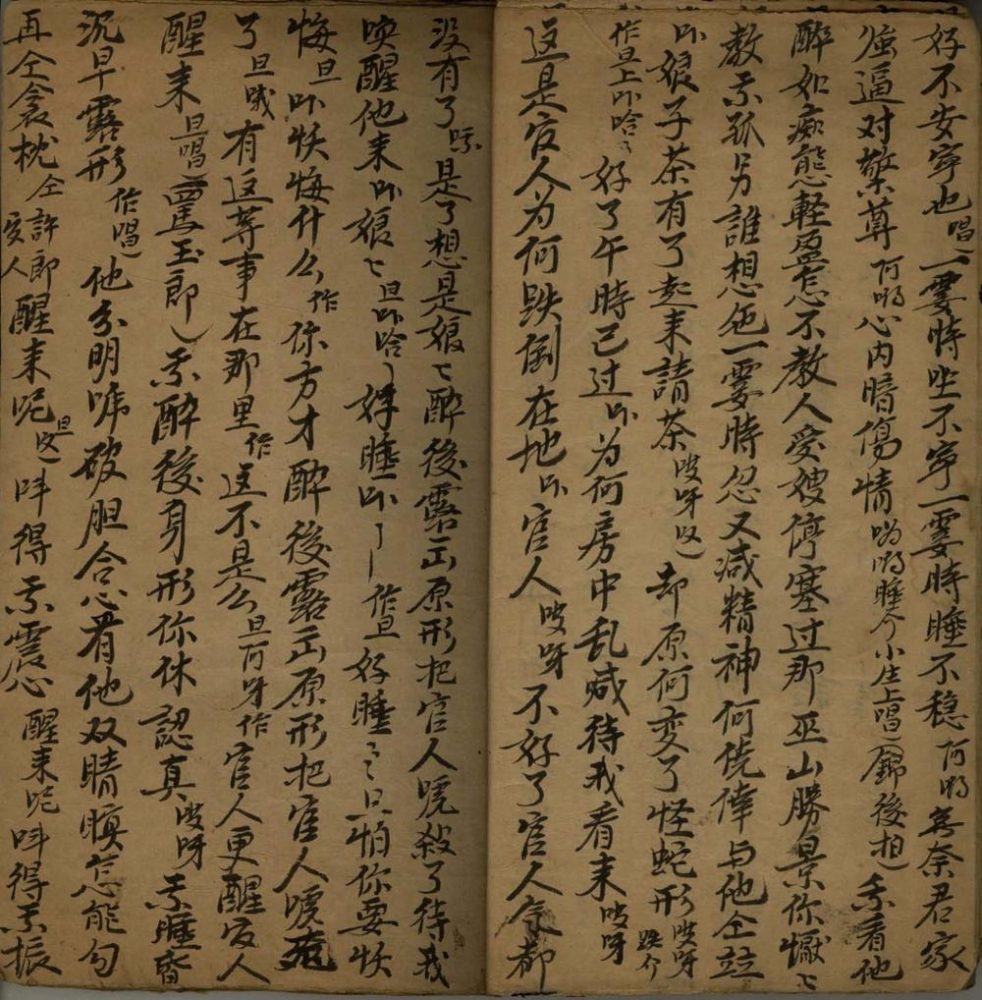 好不安宁也唱一霎時坐不宁一霎時睡不稳阿哟無奈君家
强逼对擎尊阿哟心内暗傷情哟哟睡介小生上唱錦後相我看他
醉如痴態輕盈怎不教人愛嫂停塞过那巫山勝景你懨〻
教我孤另誰想他一霎時忽又减精神何僥倖与他仝
吓娘子茶有了起来請茶嗳呀却原何变了怪蛇形嗳呀跌介
作旦上吓哈〻好了午時已过吓为何房中乱喊待我看来嗳呀
这是官人为何跌倒在地吓官人嗳呀不好了官人命都
没有了是了想是娘〻醉後露出原形把官人唬殺了待我
唤醒他来吓娘〻旦吓哈好睡吓作旦好睡〻旦怕你要怏
悔旦吓怏悔什么作你方才醉後露出原形把官人唬死
了旦哦有这等事在那里作这不是么旦阿呀作官人更醒官人
醒来旦唱罵玉郎我醉後身形你休認真嗳呀我睡昏
沉早露形作唱他分明唬破胆合心看他双睛瞑怎能勾
再仝衾枕仝許郎官人醒来呢旦唬得我震心醒来呢唬得我振